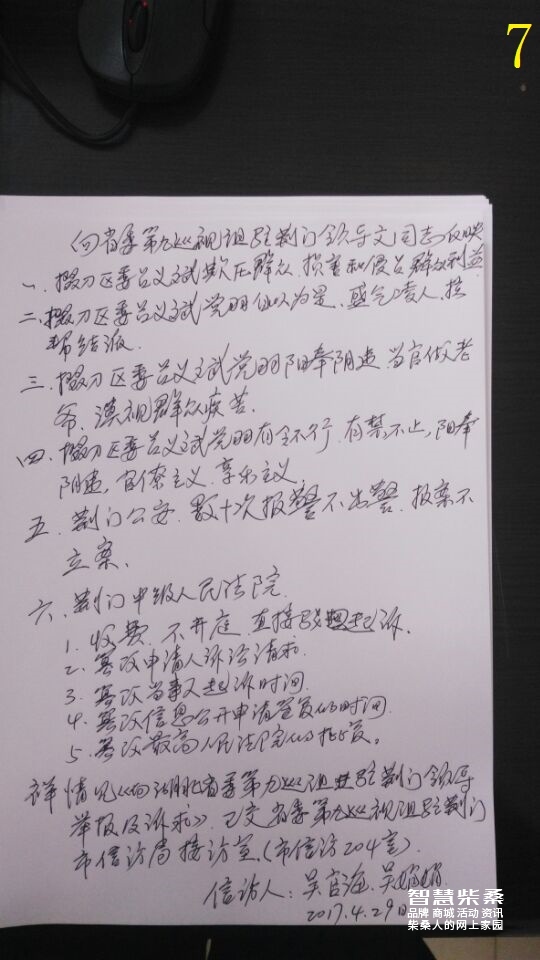 7
向省委第九巡视组驻荆门领导文同志反映
一、掇刀区委吕义斌欺压群众、损害和侵占群众利益
二、掇刀区委吕义斌党羽自以为是、盛气凌人、拉
帮结派.
三、掇刀区委吕义斌党羽阳奉阴违、当官做老
爷、漠视群众疾苦.
四、掇刀区委吕义斌党羽有令不行、有禁不止,阳奉
阴违,官僚主义、享乐主义.
五、荆门公安、数十次报警不出警、报案不
立案、
六、荆门中级人民法院.
1. 收费、不开庭、直接驳起诉.
2. 篡改申请人诉讼请求.
3. 篡改当事人起诉时间.
4. 篡改信息公开申请答复的时间.
5. 篡改最高人民法院的批复。
详情见《向湖北省委第九巡视组进驻荆门领导
举报及诉求》.已交省委第九巡视组驻荆门
市信访局接访室.(市信访204室)
信访人:吴官海、吴娟娟
2017.4.29日
智慧柴桑
品牌 商城 活动 资讯
柴桑人的网上家园